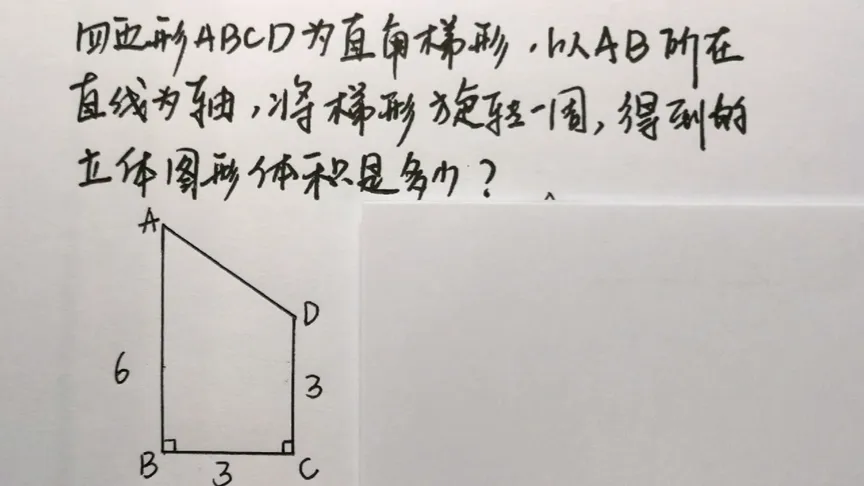 四边形ABCD为直角梯形,以AB所在
直线为轴,将梯形旋转一周,得到的
立体图形体积是多少?
A
D
6
3
B
3
C